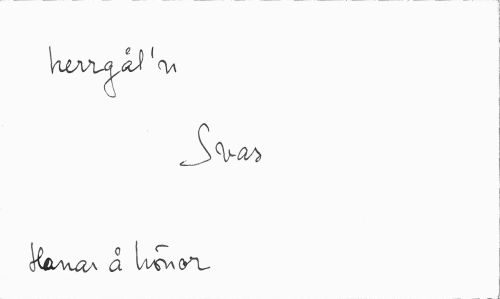 herrgål'n
Svas
Hanar å hönor